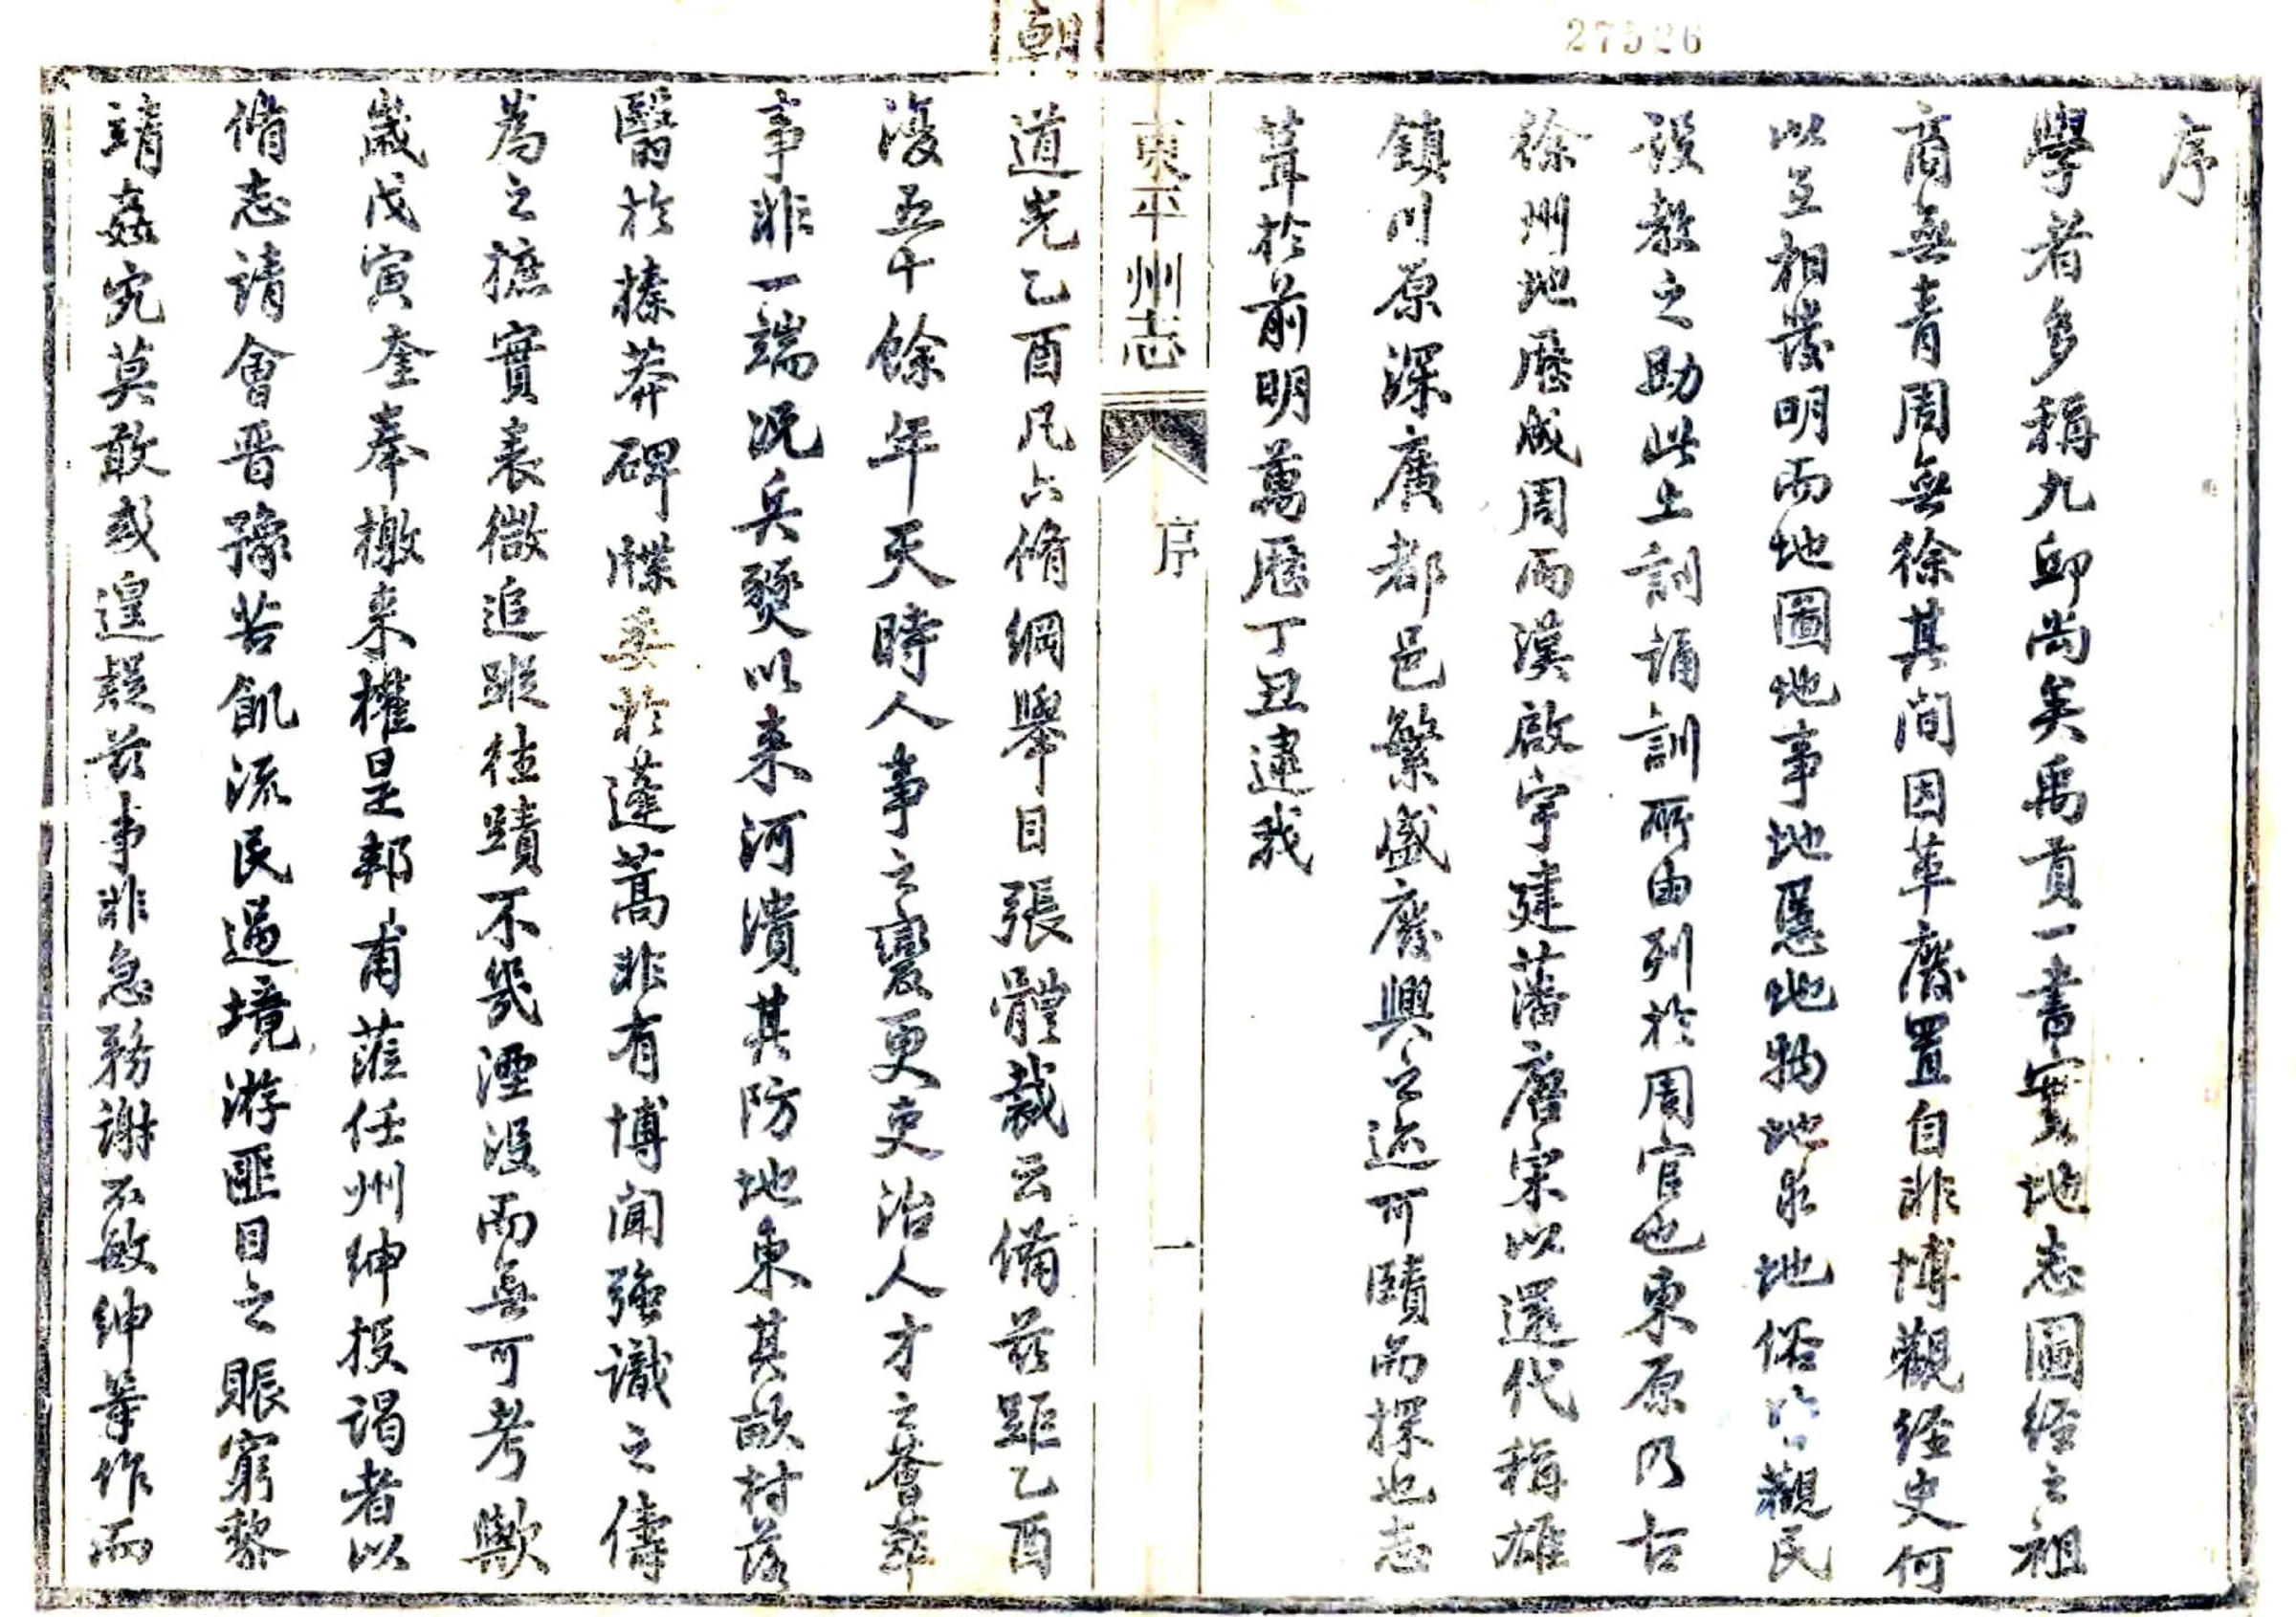 27526
序
學者多稱九邱尚矣禹貢一書實地志圖經之祖
商無青周無徐其間因革廢置自非博觀經史何
以互相發明而地圖地事地慝地物地求地俗於以觀民
設教之助此土訓誦訓所由列於周官也東原乃古
徐州地歷成周而漢啟宇建藩唐宋以還代稱雄
鎮川原深廣都邑繁盛廢興之迹可賾而探也志
葺於前明萬歷丁丑逮我
東平州志
序
一
朝
道光乙酉凡六脩綱舉目張體裁云備茲距乙酉
復五十餘年天時人事之變更吏治人才之薈萃
事非一端況兵燹以來河潰其防地東其畝村落
翳於榛莽碑牒委於蓬蒿非有博聞強識之儔
為之摭實表微追蹤往蹟不幾湮沒而無可考歟
歲戊寅奎奉檄來權是邦甫蒞任州紳投謁者以
脩志請會晉豫苦飢流民逼境游匪目之賑窮黎
靖姦宄莫敢或遑疑茲事非急務謝不敏紳等作而